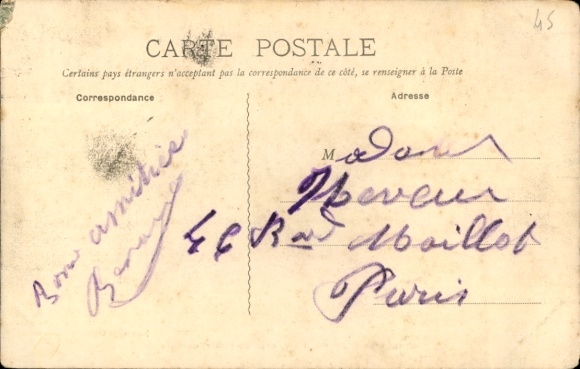 45
CARTE POSTALE
Certains pays étrangers n'acceptant pas la correspondance de ce côté, se renseigner à la Poste
Correspondance
Adresse
Bons amitiés
Madame
46 Bard Maillot
Paris